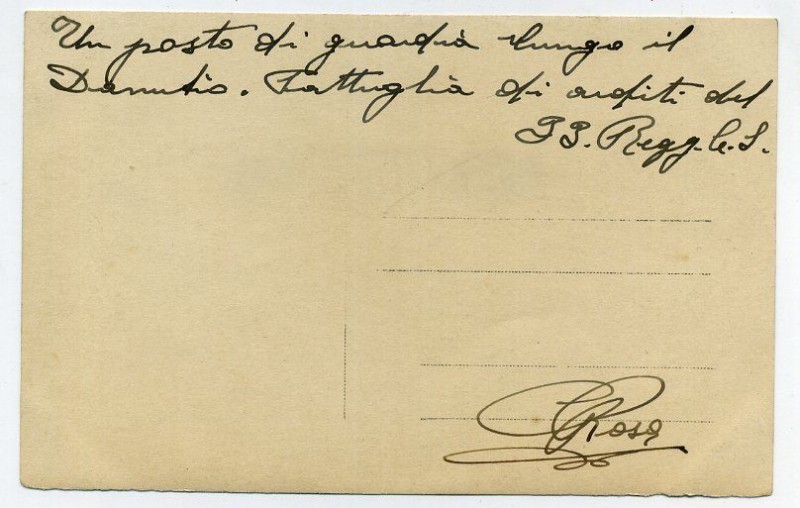 Un posto di guardia lungo il
Danubio. Pattuglia di arditi del
33. Regg. C. S.
GRosa